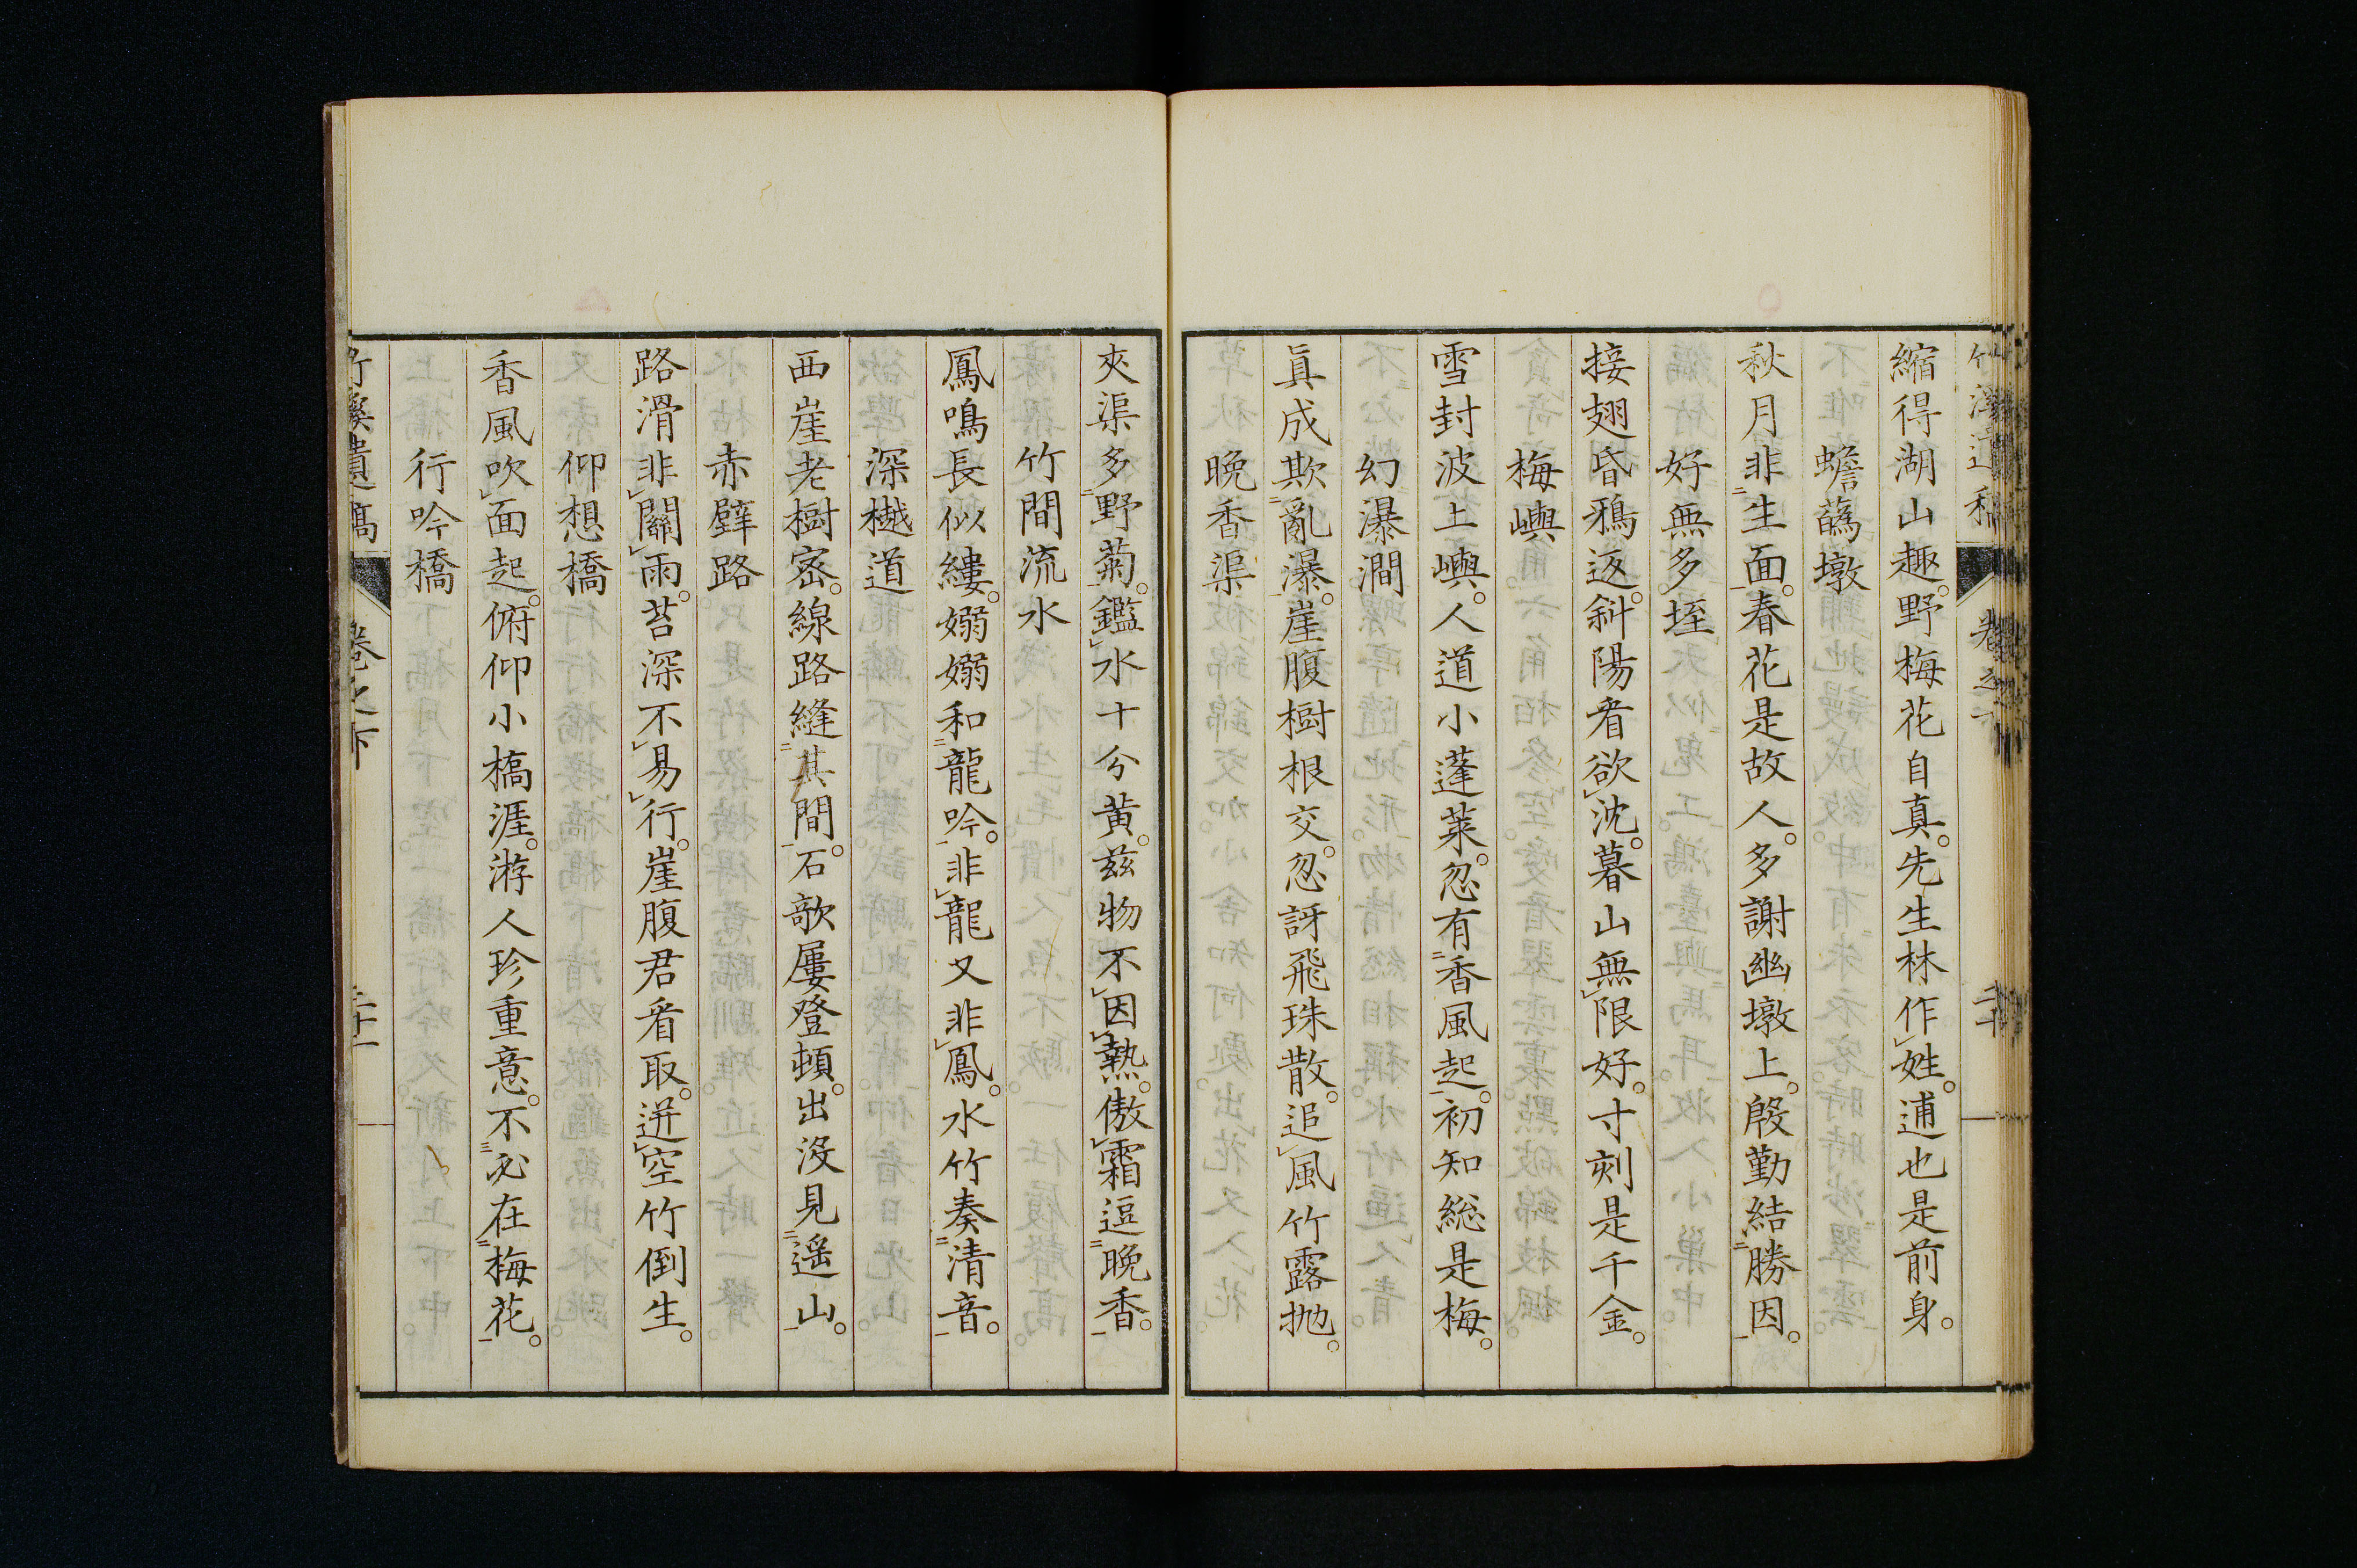 縮得湖山趣。野梅花自真。先生林作姓。逋也是前身。
蟾蘤墩
秋月非生面。春花是故人。多謝幽墩上。殷勤結勝因。
好無多埵
接翅昏鴉返。斜陽看欲沈。暮山無限好。寸刻是千金。
梅嶼
雪封波上嶼。人道小蓬萊。忽有香風起。初知総是梅。
幻瀑澗
眞成欺亂瀑。崖腹樹根交。忽訝飛珠散。追風竹露抛。
晩香渠
夾渠多野菊。鑑水十分黄。茲物不因熱。傲霜逗晩香。
竹間流水
鳳鳴長似縷。嫋嫋和龍吟。非龍又非鳳。水竹奏清音。
深樾道
西崖老樹密。線路縫其間。石欹屢登頓。出沒見遥山。
赤壁路
路滑非關雨。苔深不易行。崖腹君看取。迸空竹倒生。
仰想橋
香風吹面起。俯仰小橋涯。游人珍重意。不必在梅花。
行吟橋
竹溪遺稿 卷之下 二十一